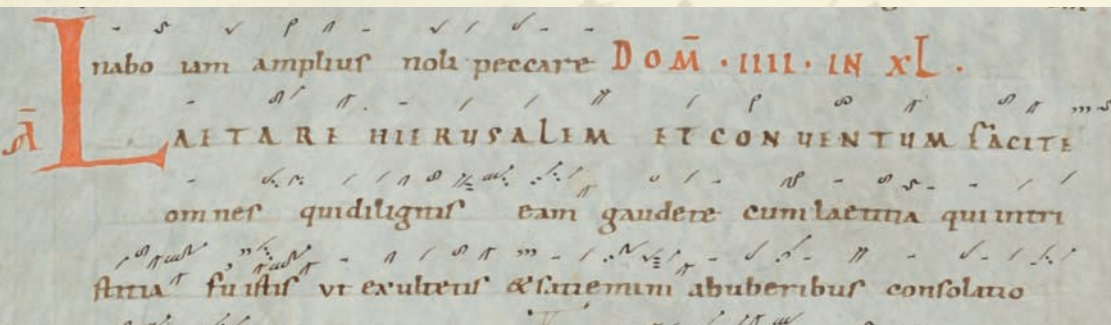 nabo iam amplius noli peccare DOM̄ · IIII · IN XL ·
Ā LAETARE HIERUSALEM ET CONUENTUM FACITE
omnes qui diligitis eam gaudete cum laetitia qui in tri
stitia fuistis ut exultetis & satiemini ab uberibus consolatio